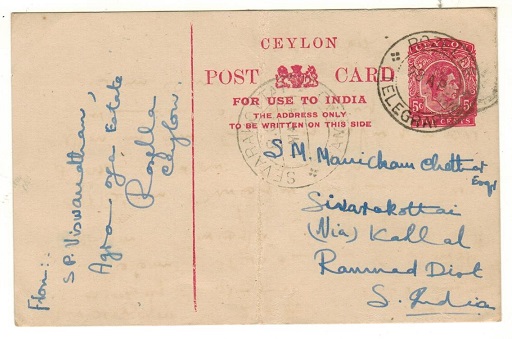 CEYLON
POST CARD
FOR USE TO INDIA
THE ADDRESS ONLY
TO BE WRITTEN ON THIS SIDE
5c 5c
CENTS
S. M. Manickam Chettiar
Esqr
Sivarakottai
(Via) Kallal
Ramnad Dist
S. India
From:-
S P. Viswanathan,
Agra oya Estate
Rozella
Ceylon.